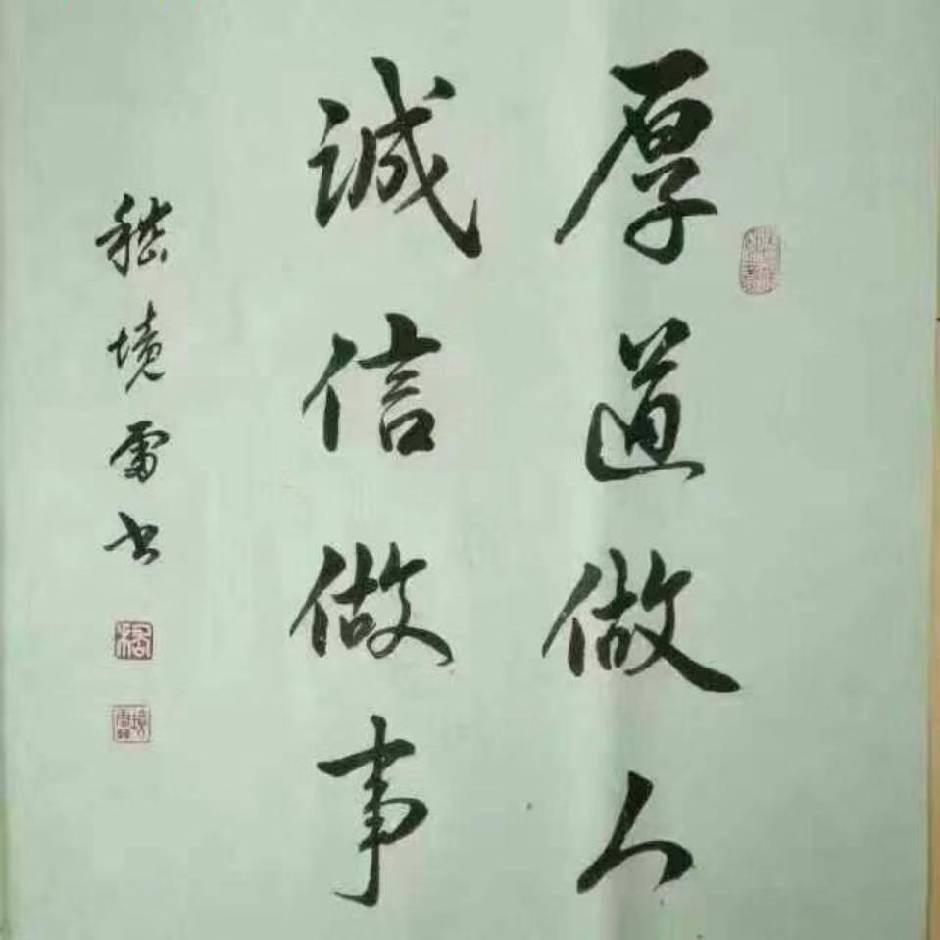 厚道做人
诚信做事
嵇境雷书